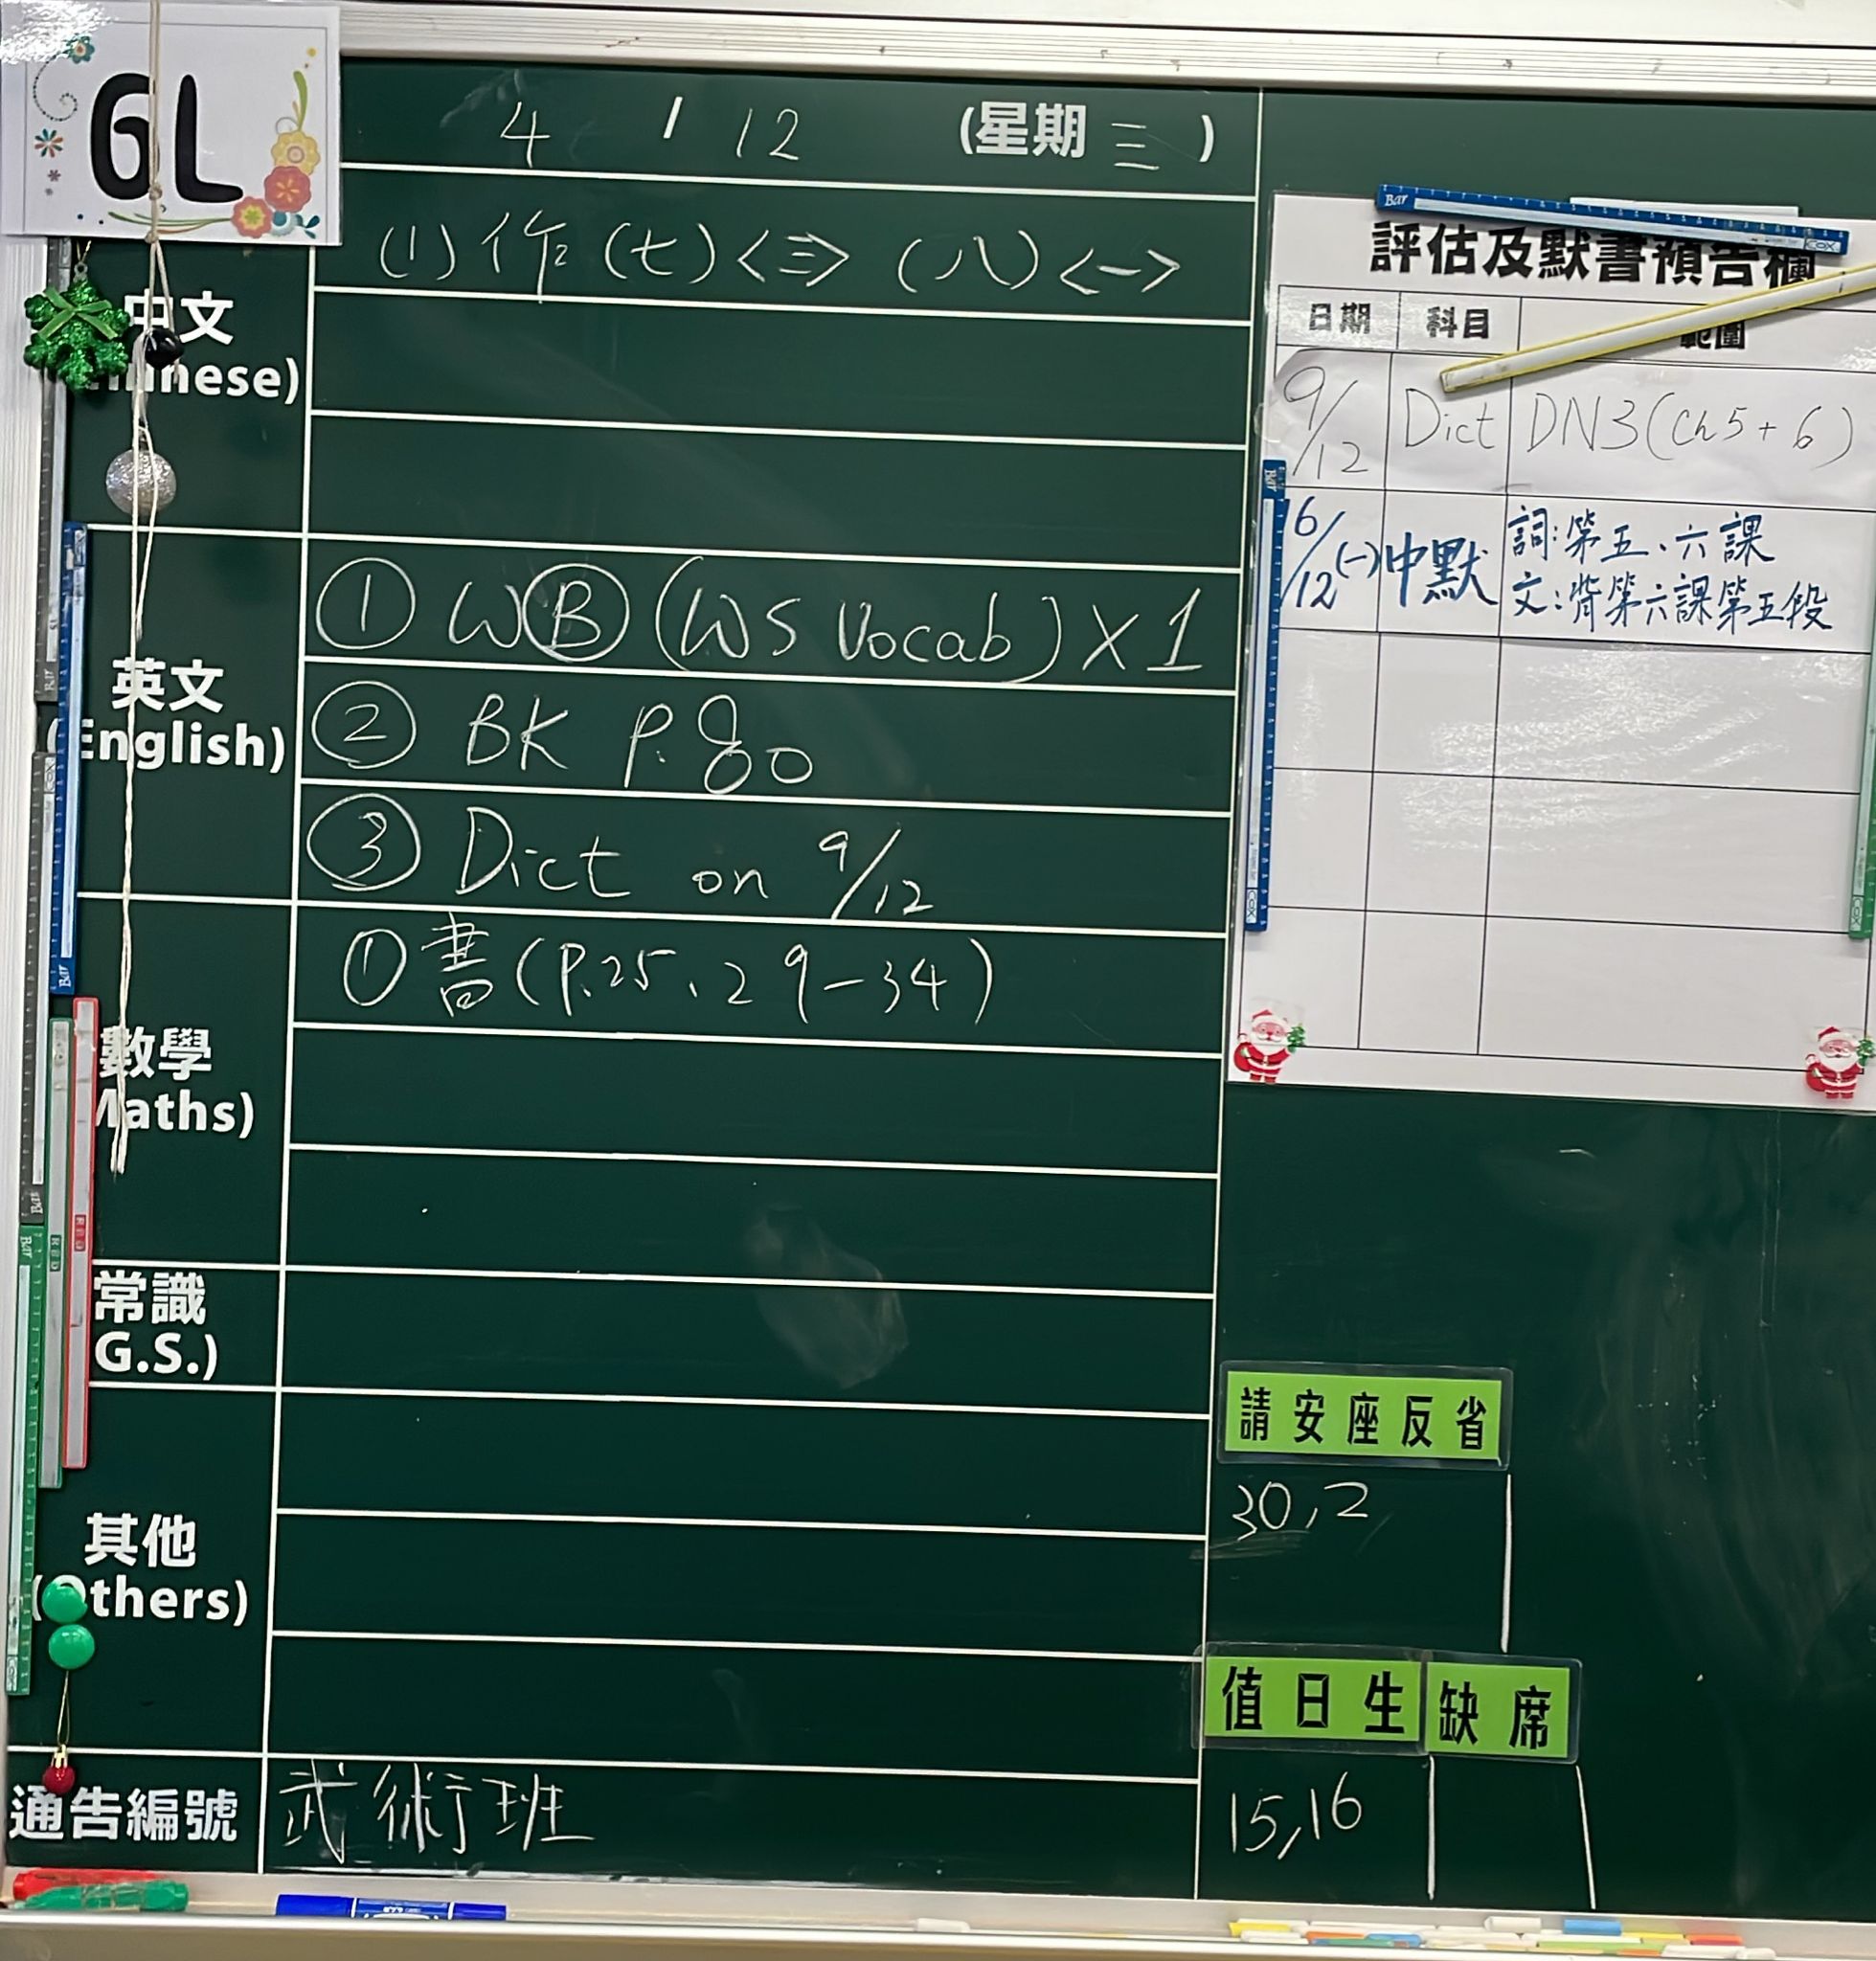 6L
4 / 12 (星期三)
中文
(Chinese)
(1) 作(七)<三> (八)<一>
英文
(English)
① WⒷ (WS Vocab) x 1
② BK P.80
③ Dict on 9/12
數學
(Maths)
① 書 (P.25、29-34)
常識
(G.S.)
其他
(Others)
通告編號
武術班
評估及默書預告欄
日期 科目 範圍
9/12 Dict DN3 (Ch 5 + 6)
16/12(一) 中默 詞:第五、六課
文:背第六課第五段
請安座反省
30, 2
值日生 缺席
15, 16